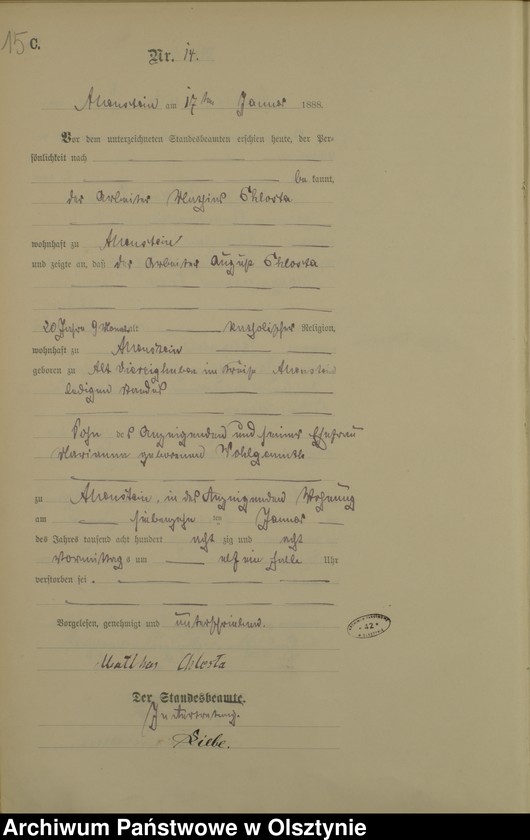 15 C.
Nr. 14.
Allenstein am 17ten Januar 1888.
Vor dem unterzeichneten Standesbeamten erschien heute, der Per-
sönlichkeit nach
be kannt,
der Arbeiter Mathias Chlosta
wohnhaft zu Allenstein
und zeigte an, daß der Arbeiter August Chlosta
20 Jahre 9 Monat alt katholischer Religion,
wohnhaft zu Allenstein
geboren zu Alt Vierzighuben im Kreise Allenstein
ledigen Standes
Sohn des Anzeigenden und seiner Ehefrau
Marianna geborenen Wohlgemuth
zu Allenstein, in des Anzeigenden Wohnung
am siebenzehn ten Januar
des Jahres tausend acht hundert acht zig und acht
Vormittags um elf ein halb Uhr
verstorben sei.
Vorgelesen, genehmigt und unterschrieben.
Mathias Chlosta
Der Standesbeamte.
In Vertretung.
42
Archiwum Państwowe w Olsztynie